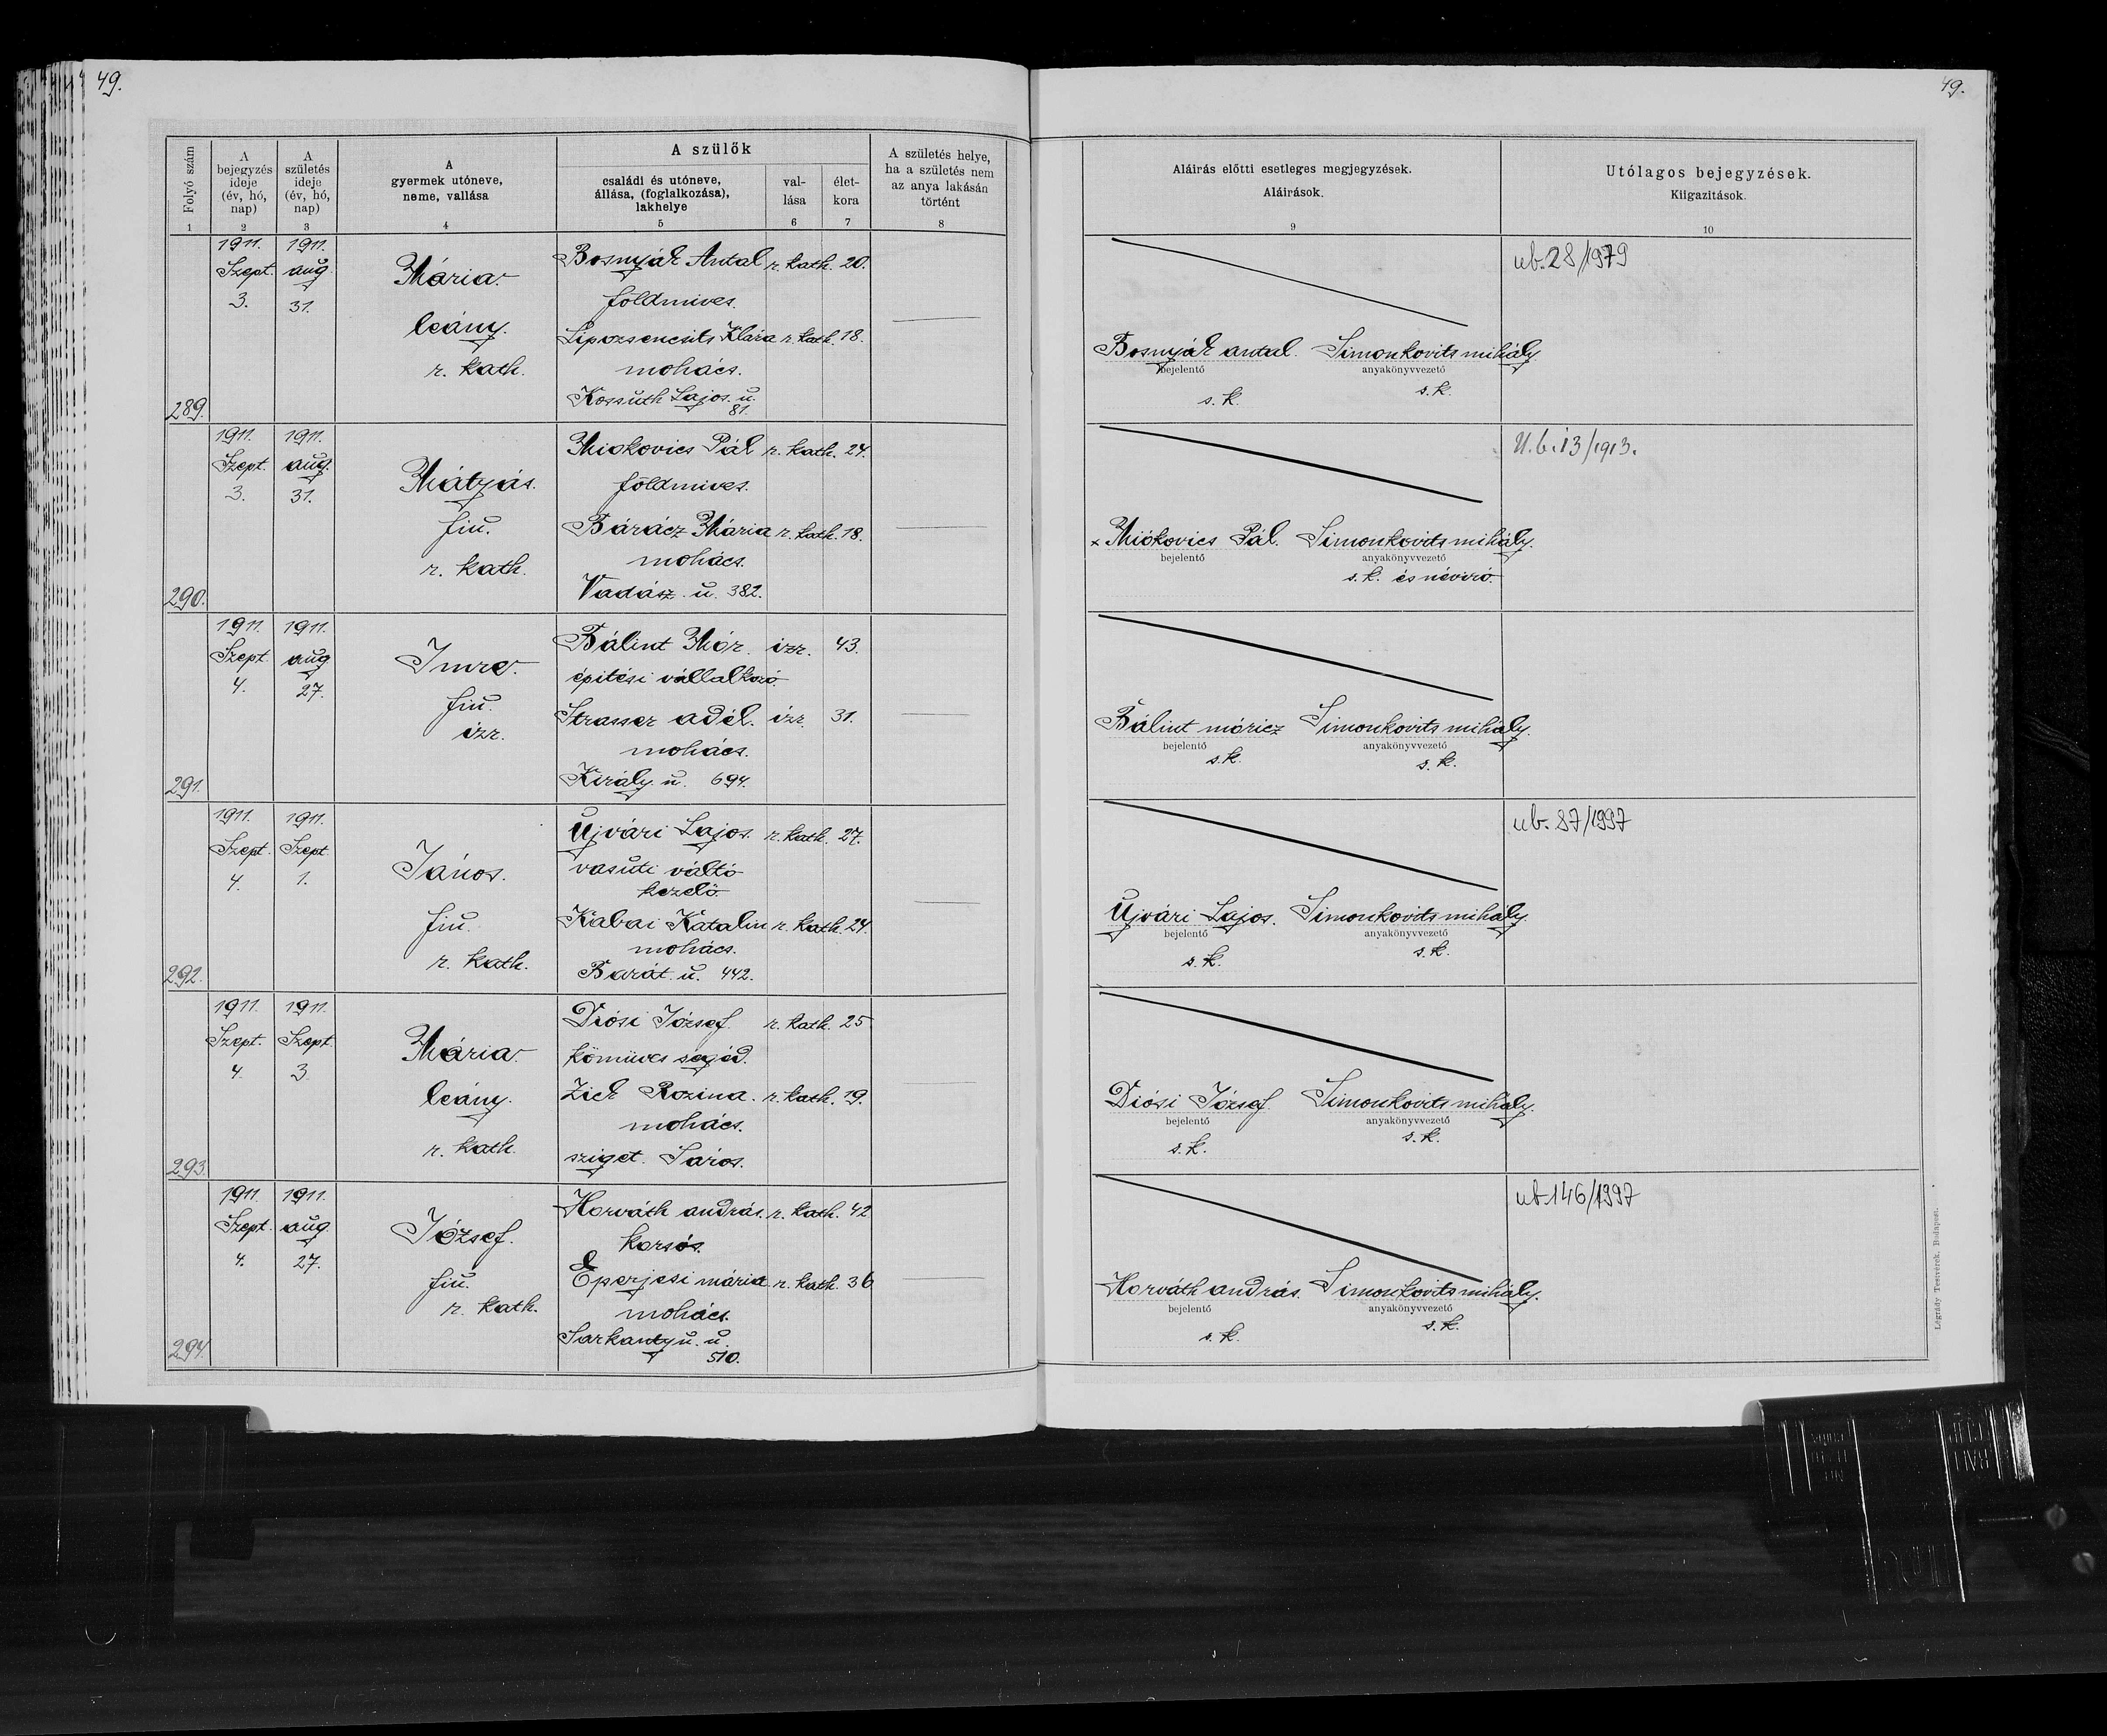 49.
49.
Folyó szám
A bejegyzés ideje (év, hó, nap)
A születés ideje (év, hó, nap)
A gyermek utóneve, neme, vallása
A szülők
családi és utóneve, állása, (foglalkozása), lakhelye
val-lása
élet-kora
A születés helye, ha a születés nem az anya lakásán történt
Aláirás előtti esetleges megjegyzések.
Aláirások.
Utólagos bejegyzések.
Kiigazitások.
1 2 3 4 5 6 7 8 9 10
1911. 1911.
Szept. aug
3. 31.
Mária.
leány.
r. kath.
Bosnyák Antal r. kath. 20.
földmives.
Lipozsencsits Klára r. kath. 18.
mohács.
Kossuth Lajos. u.
81.
289.
Bosnyák antal. Simonkovits mihály
bejelentő anyakönyvvezető
s. k. s. k.
ub. 28/1979
1911. 1911.
Szept. aug.
3. 31.
Mátyás.
fiu.
r. kath.
Miokovics Pál r. kath. 24.
földmives.
Bárácz Mária r. kath. 18.
mohács.
Vadász. u. 382.
290.
x Miókovics Pál. Simonkovits mihály.
bejelentő anyakönyvvezető
s. k. és névíró.
U. b. 13/1913.
1911. 1911.
Szept. aug
4. 27.
Imre.
fiu.
izr.
Bálint Mór. izr. 43.
épitési vállalkozó.
Strasser adél. izr. 31.
mohács.
Király. u. 694.
291.
Bálint móricz Simonkovits mihály.
bejelentő anyakönyvvezető
s. k. s. k.
1911. 1911.
Szept. Szept.
4. 1.
János.
fiu.
r. kath.
Ujvári Lajos. r. kath. 27.
vasuti váltó
kezelő.
Kabai Katalin r. kath. 24.
mohács.
Barát. u. 442.
292.
Ujvári Lajos. Simonkovits mihály.
bejelentő anyakönyvvezető
s. k. s. k.
ub. 87/1997
1911. 1911.
Szept. Szept
4. 3.
Mária.
leány.
r. kath.
Diósi József. r. kath. 25
kőmüves segéd.
Zick Rozina. r. kath. 19.
mohács.
sziget. Sáros.
293.
Diósi József Simonkovits mihály.
bejelentő anyakönyvvezető
s. k. s. k.
1911. 1911.
Szept. aug.
4. 27.
József.
fiu.
r. kath.
Horváth andrás. r. kath. 42
korsós.
Eperjesi mária r. kath. 36
mohács.
Sarkantyu. u.
510.
294.
Horváth andrás. Simonkovits mihály.
bejelentő anyakönyvvezető
s. k. s. k.
ub 146/1997
Légrády Testvérek, Budapest.